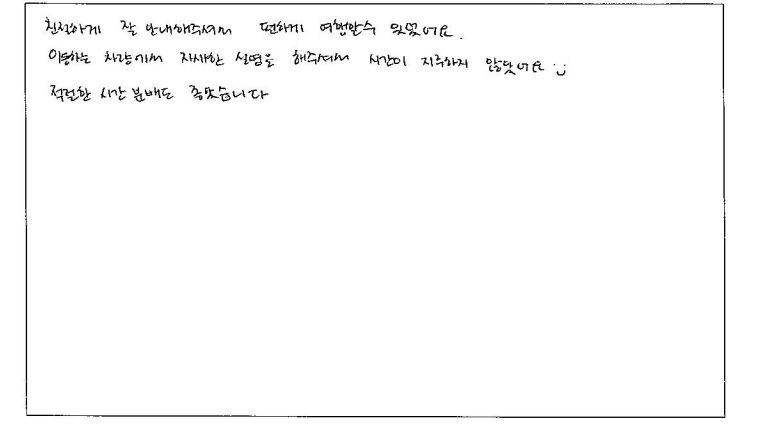 친절하게 잘 안내해주셔서 편하게 여행할수 있었어요.
이동하는 차량에서 자세한 설명을 해주셔서 시간이 지루하지 않았어요 :)
적절한 시간 분배도 좋았습니다